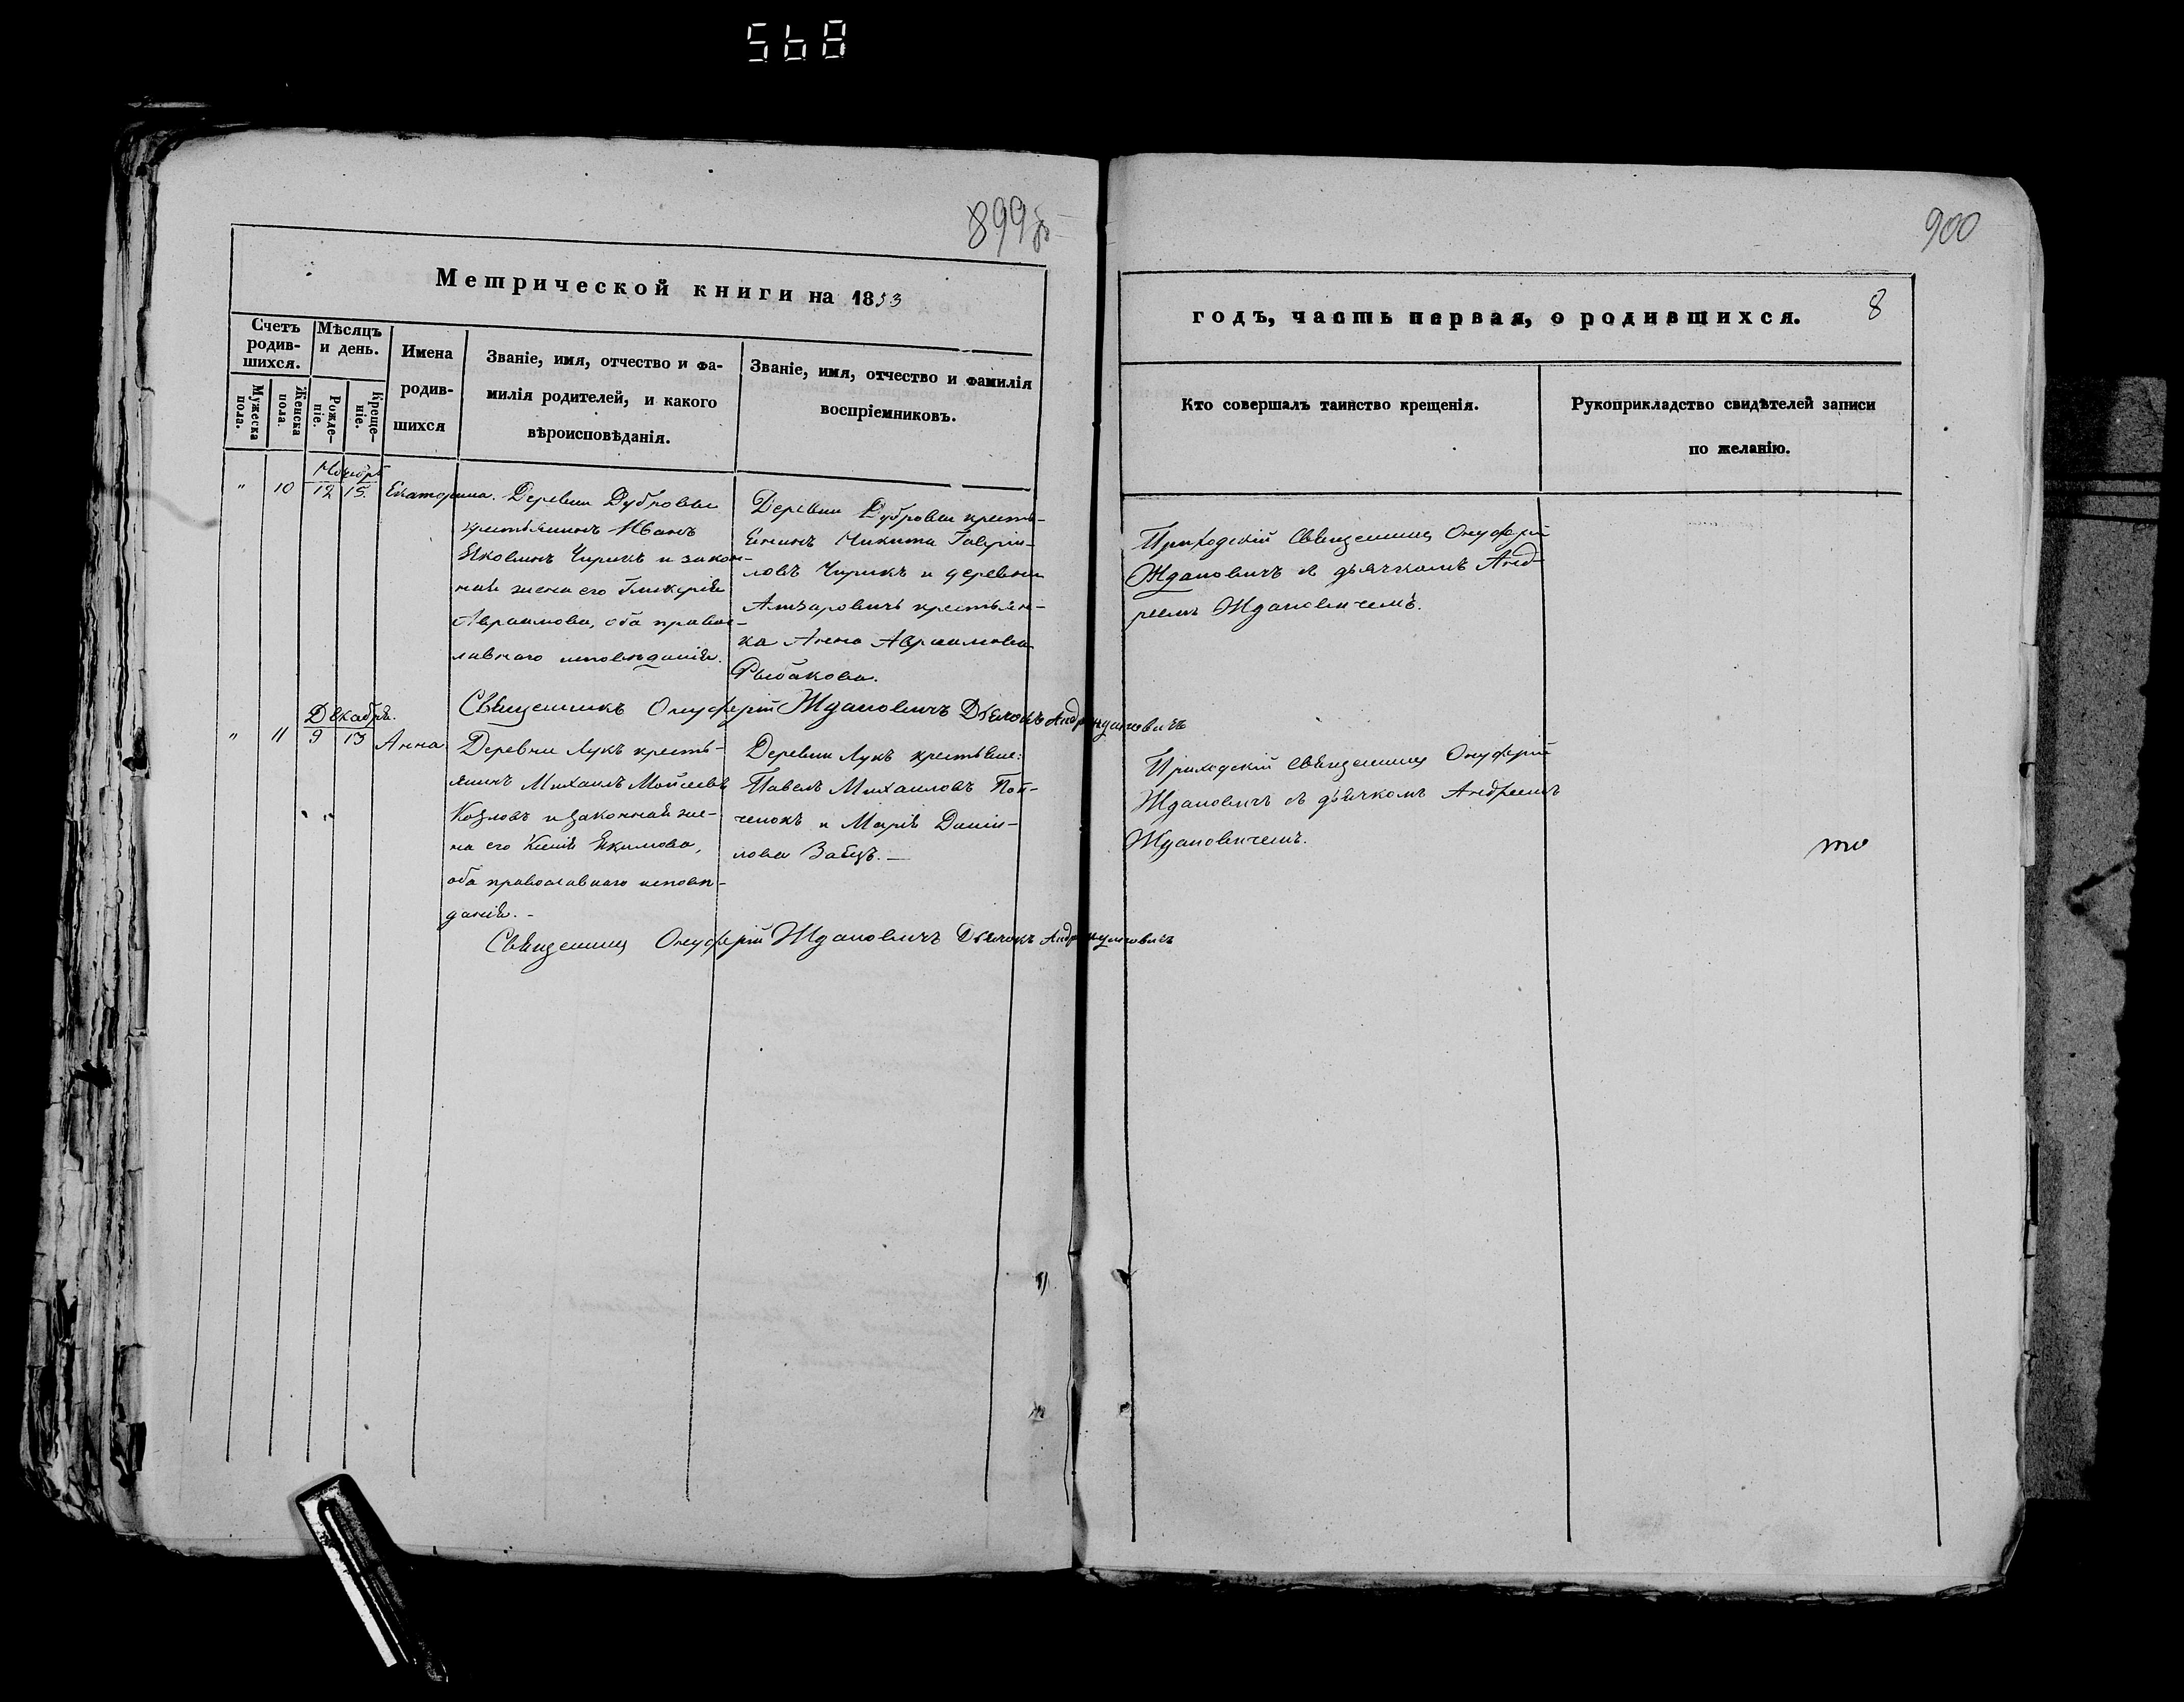 568
899об
900
Метрической книги на 1853
годъ, часть первая, о родившихся.
8
Счетъ родив-шихся.
Мужеска пола.
Женска пола.
Мѣсяцъ и день.
Рожде-ніе.
Креще-ніе.
Имена
родив-
шихся
Званіе, имя, отчество и фа-
милія родителей, и какого
вѣроисповѣданія.
Званіе, имя, отчество и фамилія
воспріемниковъ.
Кто совершалъ таинство крещенія.
Рукоприкладство свидѣтелей записи
по желанію.
Ноябрь
" 10 12 15. Екатерина.
Деревни Дубровы
крестьянинъ Иванъ
Яковлевъ Чирикъ и закон-
ная жена его Гликерія
Авраамова, оба правос-
лавнаго исповѣданія.
Деревни Дубровы кресть-
янинъ Никита Гаврiи-
ловъ Чирикъ и деревни
крестьян-
ка Анна Авраамова
Рыбакова.
Приходскій Священникъ Онуфрій
Ждановичъ съ дьячкомъ Анд-
реемъ Ждановичемъ.
Священникъ Онуферій Ждановичъ Дьячокъ Андрей Ждановичъ
Декабрь.
" 11 9 13 Анна
Деревни Лукъ кресть-
янинъ Михаилъ Мойсеевъ
Козловъ и законная же-
на его Ксенія Якимова,
оба православнаго исповѣ-
данія. -
Деревни Лукъ крестьяне:
Павелъ Михаиловъ Поп-
ченокъ и Марія Даніи-
лова Заяцъ. —
Приходскій Священникъ Онуферій
Ждановичъ съ дьячкомъ Андреемъ
Ждановичемъ.
Священникъ Онуферій Ждановичъ Дьячокъ Андрей Ждановичъ